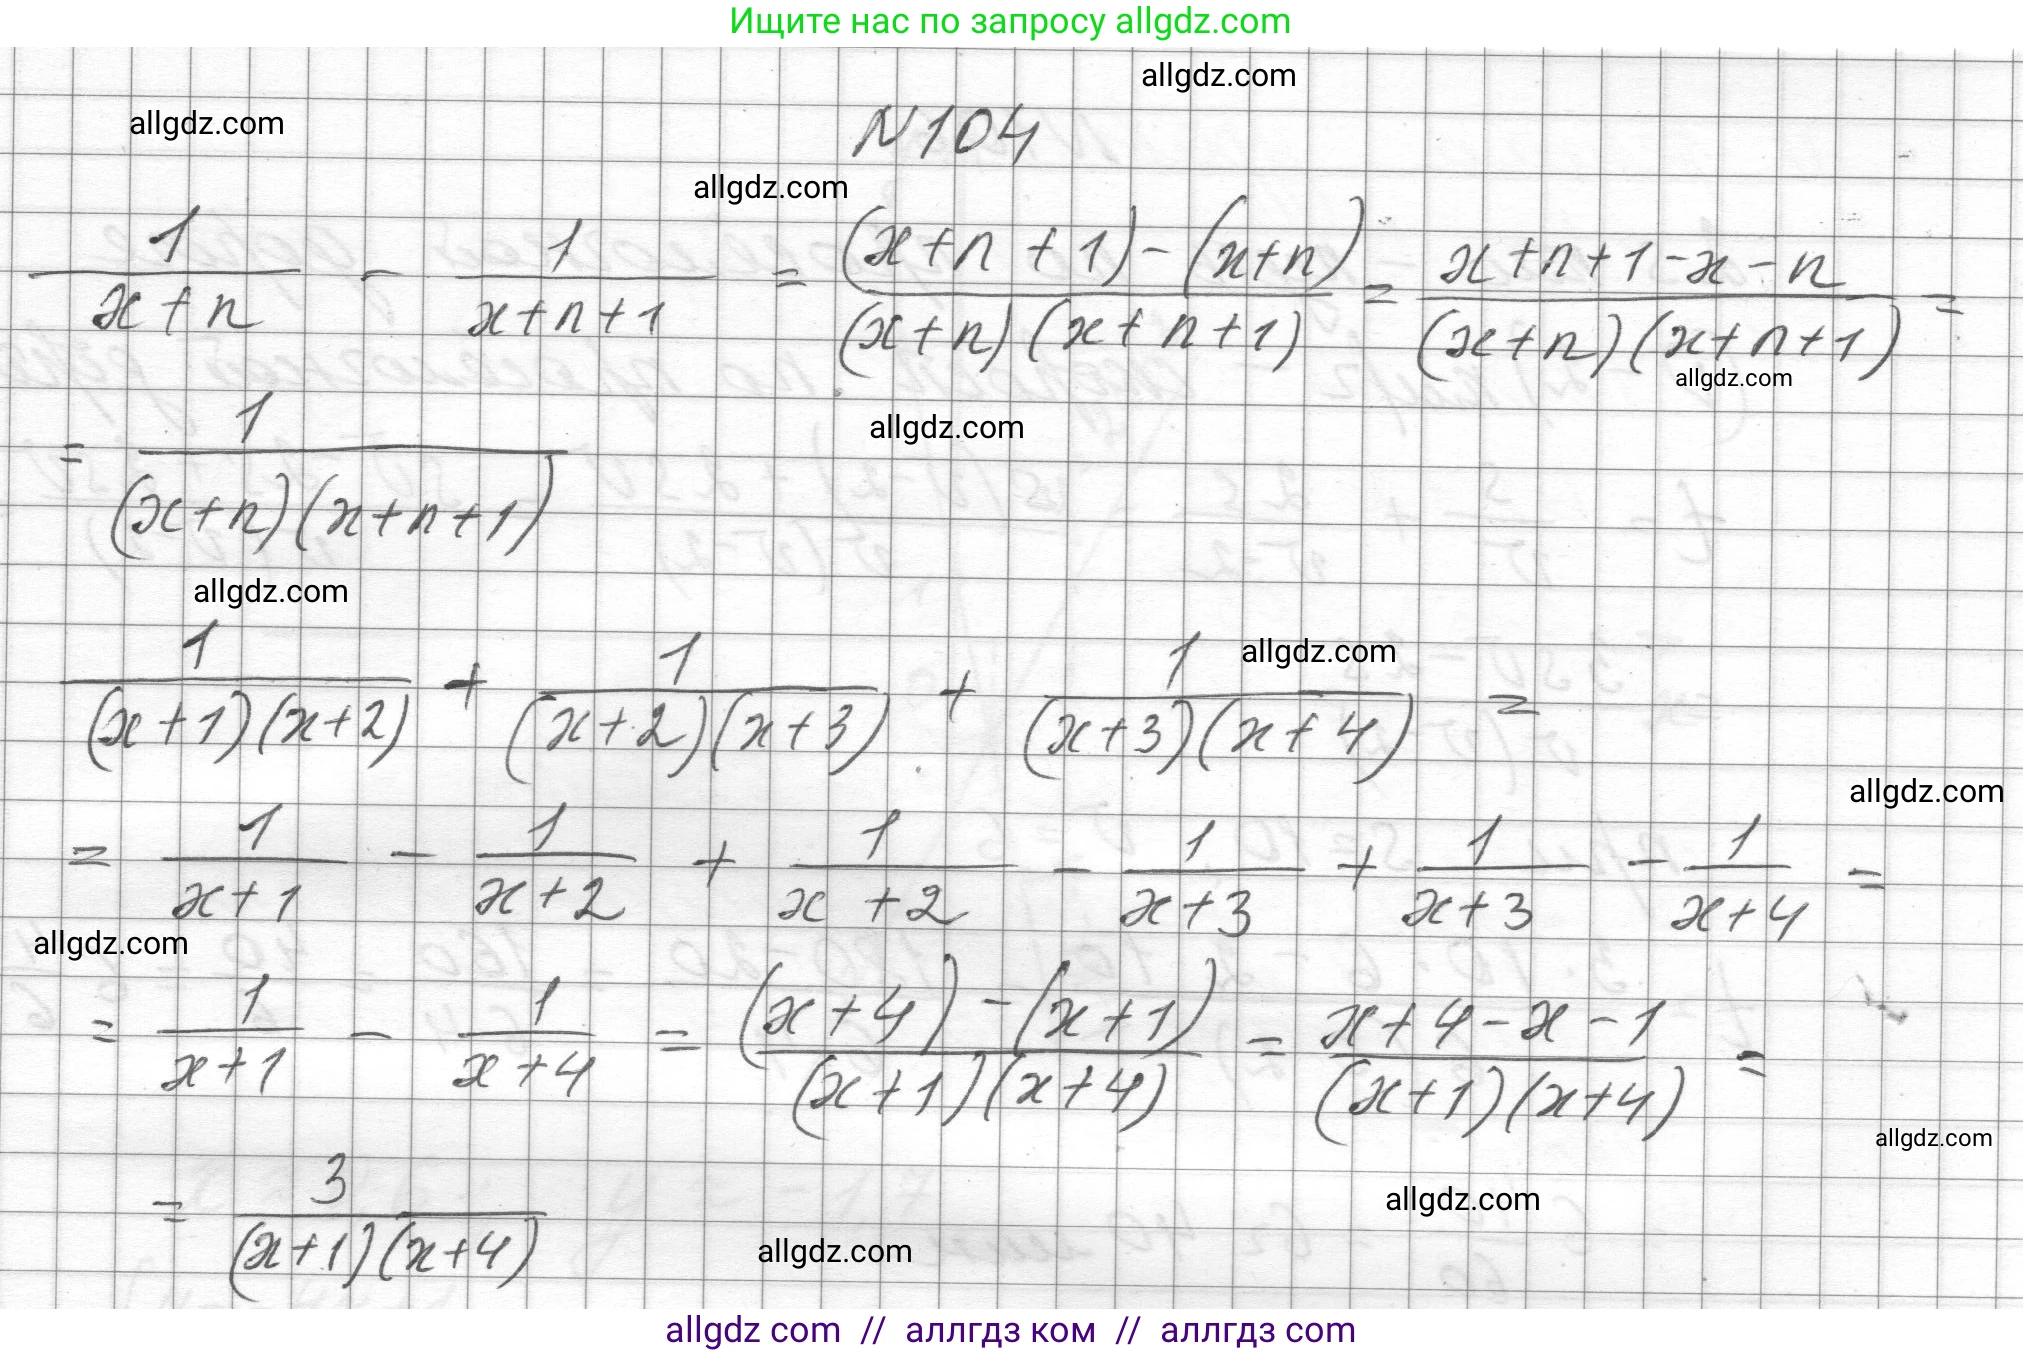 Ищите нас по запросу allgdz.com
allgdz.com
allgdz.com
N104
allgdz.com
1/(x+n) - 1/(x+n+1) = ((x+n+1)-(x+n))/((x+n)(x+n+1)) = (x+n+1-x-n)/((x+n)(x+n+1)) =
allgdz.com
allgdz.com
= 1/((x+n)(x+n+1))
allgdz.com
allgdz.com
1/((x+1)(x+2)) + 1/((x+2)(x+3)) + 1/((x+3)(x+4)) =
allgdz.com
= 1/(x+1) - 1/(x+2) + 1/(x+2) - 1/(x+3) + 1/(x+3) - 1/(x+4) =
allgdz.com
= 1/(x+1) - 1/(x+4) = ((x+4)-(x+1))/((x+1)(x+4)) = (x+4-x-1)/((x+1)(x+4)) =
allgdz.com
allgdz.com
= 3/((x+1)(x+4))
allgdz.com
allgdz com // аллгдз ком // аллгдз com